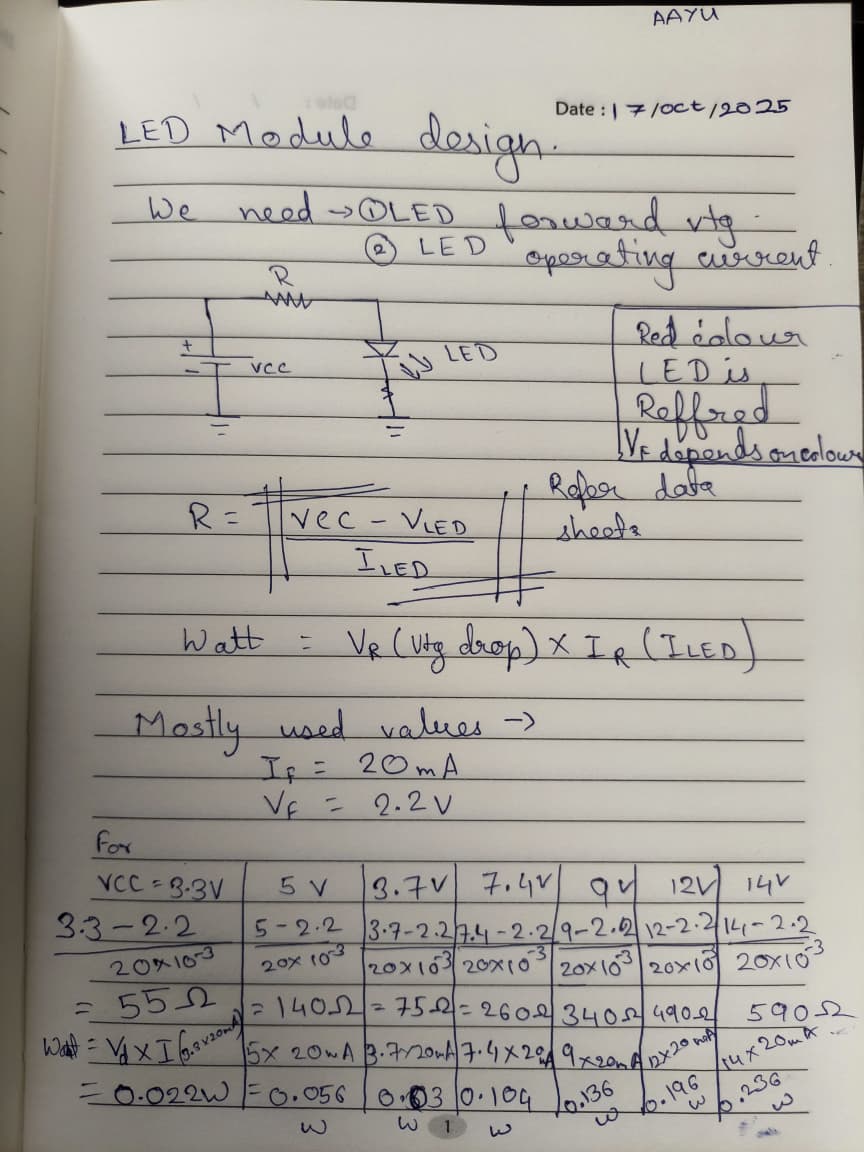 AAYU
Date : 17/Oct/2025
LED Module design.
We need → ① LED forward vtg.
② LED operating current.
R
+
-
VCC
LED
Red colour
LED is
Reffred
VF depends on colour
Refer data
sheets
R = VCC - VLED
ILED
Watt = VR (Vtg drop) × IR (ILED)
Mostly used values →
IF = 20mA
VF = 2.2V
For
VCC = 3.3V 5V 3.7V 7.4V 9V 12V 14V
3.3-2.2 5-2.2 3.7-2.2 7.4-2.2 9-2.2 12-2.2 14-2.2
20×10-3 20×10-3 20×10-3 20×10-3 20×10-3 20×10 20×10-3
= 55Ω = 140Ω = 75Ω = 260Ω 340Ω 490Ω 590Ω
Watt = Vd × I (3.3×20mA) 5× 20mA 3.7×20mA 7.4×20A 9×20mA 12×20mA 14×20mA
= 0.022W = 0.056 W 0.03 W 0.104 W 0.136 W 0.196 W 0.236 W
1